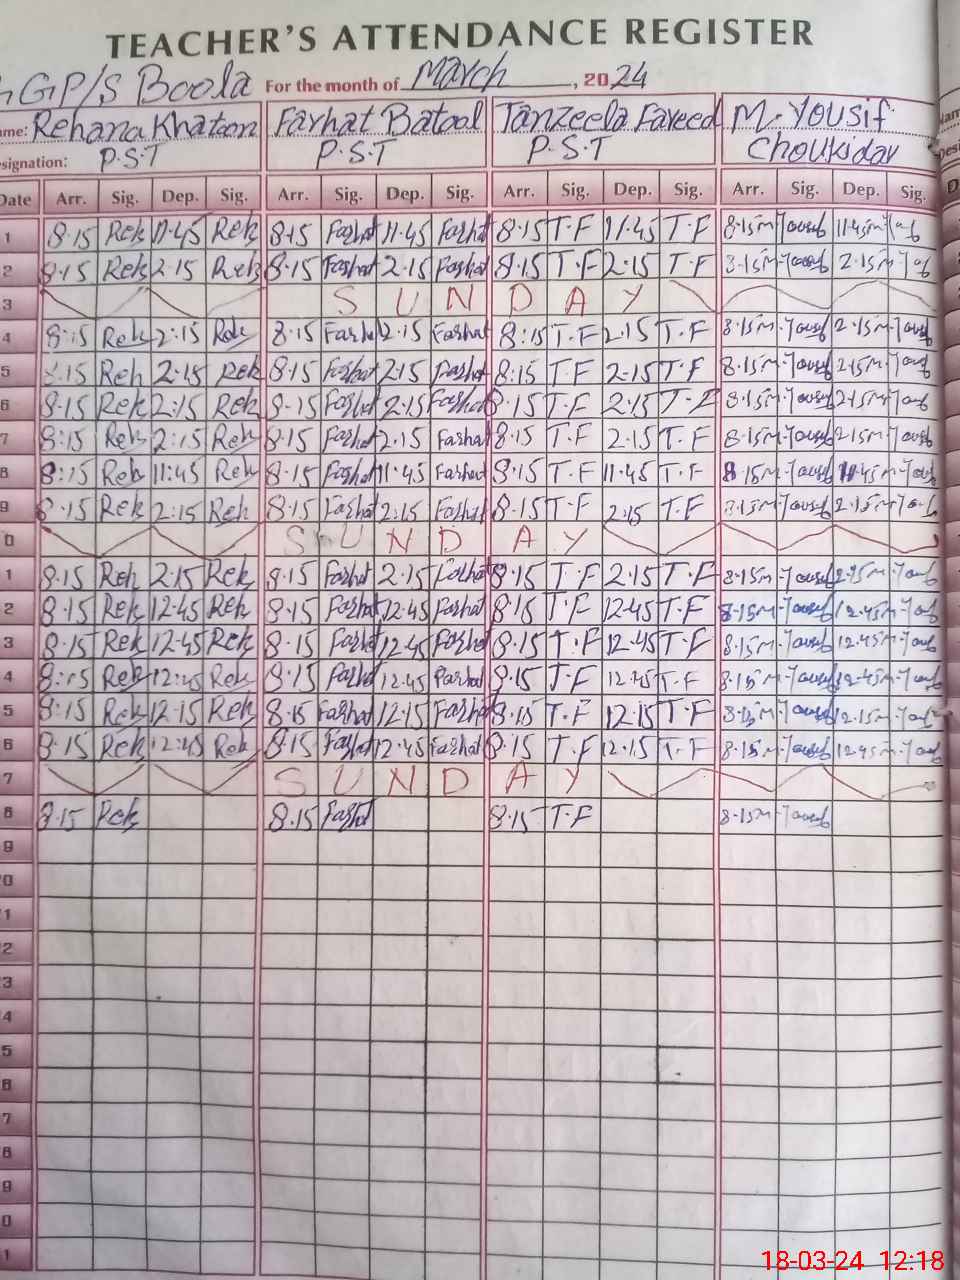 TEACHER'S ATTENDANCE REGISTER
GGP/S Boola For the month of March, 2024
ame: Rehana Khatoon Farhat Batool Tanzeela Fareed M. Yousif
signation: P.S.T P.S.T P.S.T Choukidar
Date Arr. Sig. Dep. Sig. Arr. Sig. Dep. Sig. Arr. Sig. Dep. Sig. Arr. Sig. Dep. Sig.
1 8.15 Reh 11.45 Reh 8.15 Farhat 11.45 Farhat 8.15 T.F 11.45 T.F 8.15 11.45
2 8.15 Reh 2.15 Reh 8.15 Farhat 2.15 Farhat 8.15 T.F 2.15 T.F 8.15 2.15
3 SUNDAY
4 8:15 Reh 2:15 Reh 8.15 Farhat 2.15 Farhat 8:15 T.F 2.15 T.F 8.15 2.15
5 8.15 Reh 2.15 Reh 8.15 Farhat 2.15 Farhat 8:15 T.F 2.15 T.F 8.15 2.15
6 8.15 Reh 2:15 Reh 8.15 Farhat 2.15 Farhat 8.15 T.F 2.15 T.F 8.15 2.15
7 8:15 Reh 2:15 Reh 8.15 Farhat 2.15 Farhat 8.15 T.F 2.15 T.F 8.15 2.15
8 8:15 Reh 11:45 Reh 8.15 Farhat 11.45 Farhat 8.15 T.F 11.45 T.F 8.15 11.45
9 8.15 Reh 2:15 Reh 8.15 Farhat 2:15 Farhat 8.15 T.F 2.15 T.F 8.15 2.15
0 SUNDAY
1 8.15 Reh 2.15 Reh 8.15 Farhat 2.15 Farhat 8.15 T.F 2.15 T.F 8.15 2.15
2 8.15 Reh 12.45 Reh 8.15 Farhat 12.45 Farhat 8.15 T.F 12.45 T.F 8.15 12.45
3 8.15 Reh 12.45 Reh 8.15 Farhat 12.45 Farhat 8.15 T.F 12.45 T.F 8.15 12.45
4 8:15 Reh 12:45 Reh 8.15 Farhat 12.45 Farhat 8.15 T.F 12.45 T.F 8.15 12.45
5 8:15 Reh 12.15 Reh 8.15 Farhat 12.15 Farhat 8.15 T.F 12.15 T.F 8.15 12.15
6 8.15 Reh 12:45 Reh 8.15 Farhat 12.45 Farhat 8.15 T.F 12.15 T.F 8.15 12.45
7 SUNDAY
8 8.15 Reh 8.15 Farhat 8.15 T.F 8.15
9
0
1
2
3
4
5
6
7
8
9
0
1
18-03-24 12:18